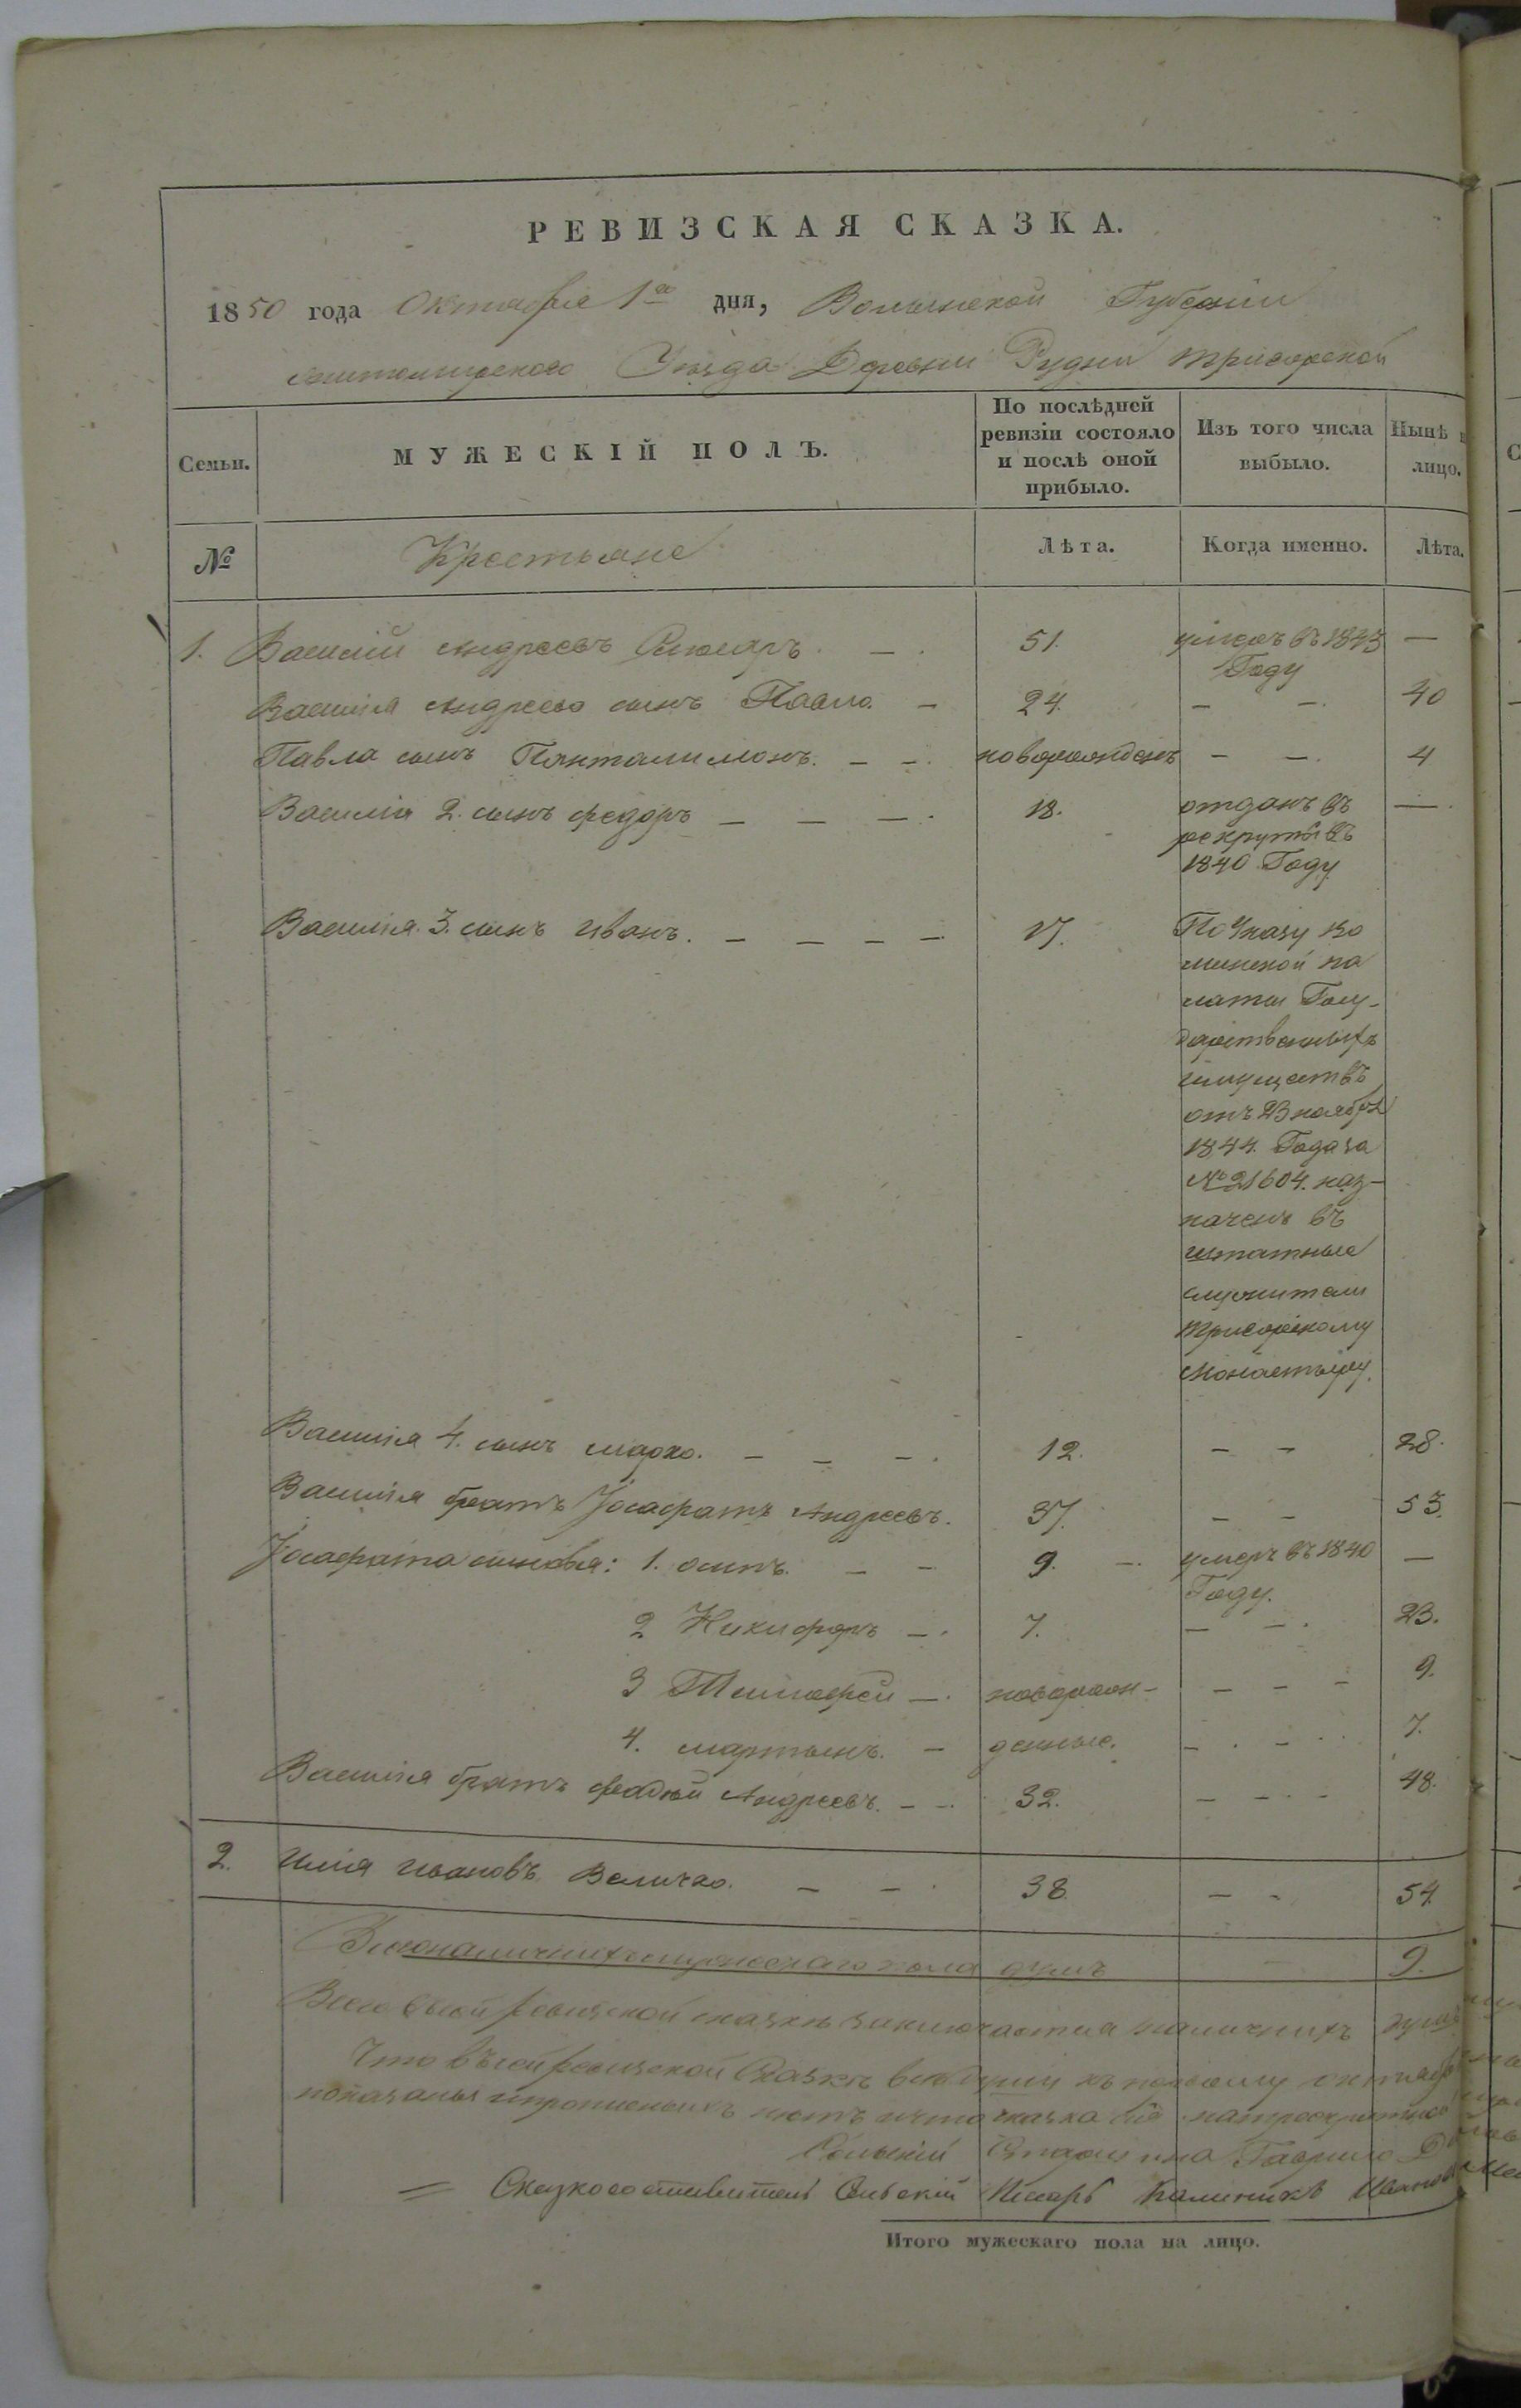 РЕВИЗСКАЯ СКАЗКА.
1850 года Октября 1го дня, Волынской Губерніи
житомирского Уѣзда Деревни Рудни тригорской
Семьи.
МУЖЕСКІЙ ПОЛЪ.
По послѣдней
ревизіи состояло
и послѣ оной
прибыло.
Изъ того числа
выбыло.
Нынѣ
лицо.
№
Крестьяне
Лѣта.
Когда именно.
Лѣта.
1. Василій Андреевъ — . 51. умеръ въ 1843 —
Году
Василія Андреева сынъ Павло. — 24. — —. 40
Павла сынъ Пантилимонъ. — —. новорожденъ — —. 4
Василія 2. сынъ федоръ — — —. 18. отданъ въ —.
рекруты въ
1840 Году
Василія. 3. сынъ иванъ. — — — — 17. По Указу Во
лынской па
латы Госу-
дарственныхъ
имуществъ
отъ 23 ноября
1844. Года за
№ 21604. наз-
наченъ въ
штатные
служители
тригорскому
монастырю.
Василія 4. сынъ марко. — — —. 12. — — 28.
Василія братъ Іосафатъ Андреевъ. 37. — — 53.
Іосафата сыновья: 1. осипъ. — — 9. —. умеръ въ 1840 —
Году.
2 Никифоръ —. 7. — —. 23.
3 Тимофей —. новорож- — — — 9.
4. мартынъ. — денные. — . — . . 7.
Василія братъ федій Андреевъ. — —. 32. — — — 48.
2. Илія ивановъ Величко. — — . 38. — — 54
Всего наличныхъ мужескаго пола душъ — 9.
Всего въ сей ревизской сказкѣ заключается наличныхъ душъ
Что въ сей ревизской Сказкѣ всѣ души къ первому октября
показаны и прописныхъ нѣтъ и что сказка
Сельскій Старшина Гаврило
= Сказкосоставитель Сельскій Писарь Калиникъ Иванов
Итого мужескаго пола на лицо.